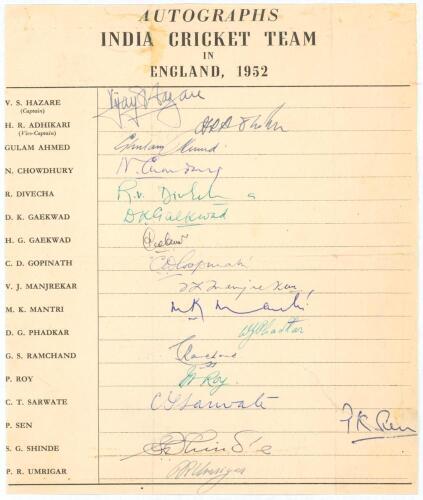 AUTOGRAPHS
INDIA CRICKET TEAM
IN
ENGLAND, 1952
V. S. HAZARE Vijay Hazare
(Captain)
H. R. ADHIKARI
(Vice-Captain)
GULAM AHMED Ghulam Ahmed
N. CHOWDHURY N. Chowdhury
R. DIVECHA R.V. Divecha
D. K. GAEKWAD D.K. Gaekwad
H. G. GAEKWAD
C. D. GOPINATH C.D. Gopinath
V. J. MANJREKAR V.L. Manjrekar
M. K. MANTRI M.K. Mantri
D. G. PHADKAR DG Phadkar
G. S. RAMCHAND Ramchand
P. ROY P. Roy.
C. T. SARWATE C T Sarwate
P. SEN P. K. Sen
S. G. SHINDE SG Shinde
P. R. UMRIGAR P R Umrigar